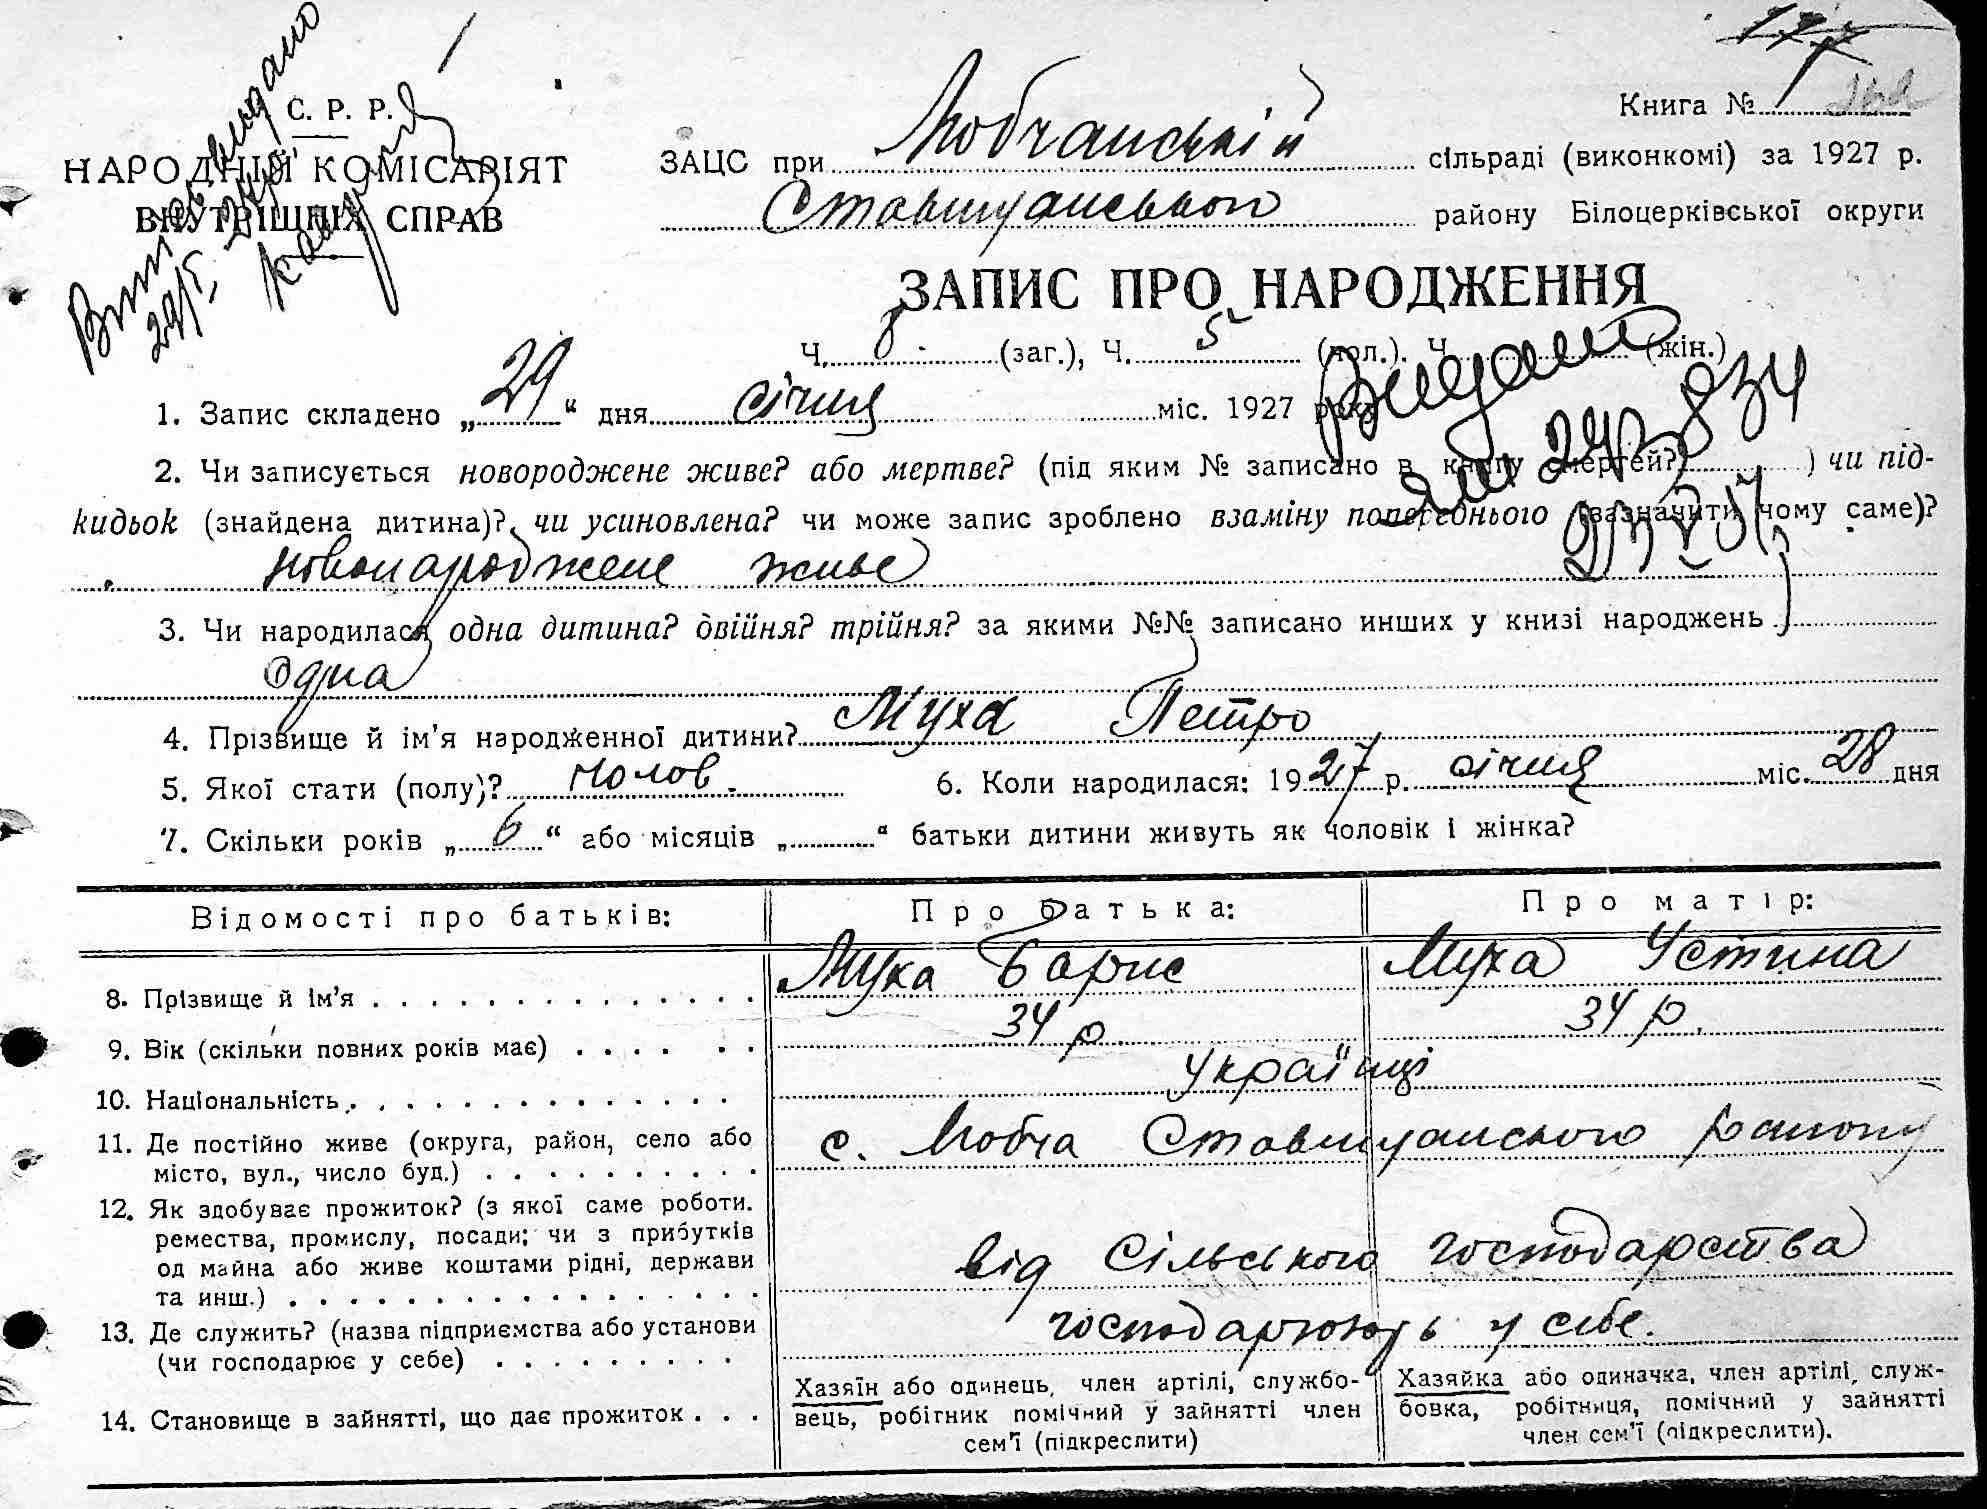 С. Р. Р.
НАРОДНІЙ КОМІСАРІЯТ
ВНУТРІШНІХ СПРАВ
Книга №
ЗАЦС при Любчанській сільраді (виконкомі) за 1927 р.
Ставищанського району Білоцерківської округи
ЗАПИС ПРО НАРОДЖЕННЯ
Ч. 8 (заг.), Ч. 5 (чол.). Ч. (жін.)
1. Запис складено „ 29 “ дня січня міс. 1927 року
2. Чи записується новороджене живе? або мертве? (під яким № записано в книгу смертей? ) чи під-
кидьок (знайдена дитина)? чи усиновлена? чи може запис зроблено взаміну попереднього (зазначити чому саме)?
новонароджене живе
3. Чи народилася одна дитина? двійня? трійня? за якими №№ записано инших у книзі народжень
Одна
4. Прізвище й ім’я народженної дитини? Муха Петро
5. Якої стати (полу)? чолов. 6. Коли народилася: 1927 р. січня міс. 28 дня
7. Скільки років „ 6 “ або місяців „ “ батьки дитини живуть як чоловік і жінка?
Відомості про батьків: Про батька: Про матір:
8. Прізвище й ім’я Муха Барис Муха Устина
9. Вік (скільки повних років має) 34 р. 34 р.
10. Національність українці
11. Де постійно живе (округа, район, село або
місто, вул., число буд.) с. Любча Ставищанського району
12. Як здобуває прожиток? (з якої саме роботи.
ремества, промислу, посади; чи з прибутків
од майна або живе коштами рідні, держави
та инш.) від сільського господарства
13. Де служить? (назва підприємства або установи
(чи господарює у себе) господарюють у себе.
14. Становище в зайнятті, що дає прожиток
Хазяїн або одинець, член артілі, службо-
вець, робітник помічний у зайнятті член
сем’ї (підкреслити)
Хазяйка або одиначка, член артілі, служ-
бовка, робітниця, помічний у зайнятті
член сем’ї (підкреслити).